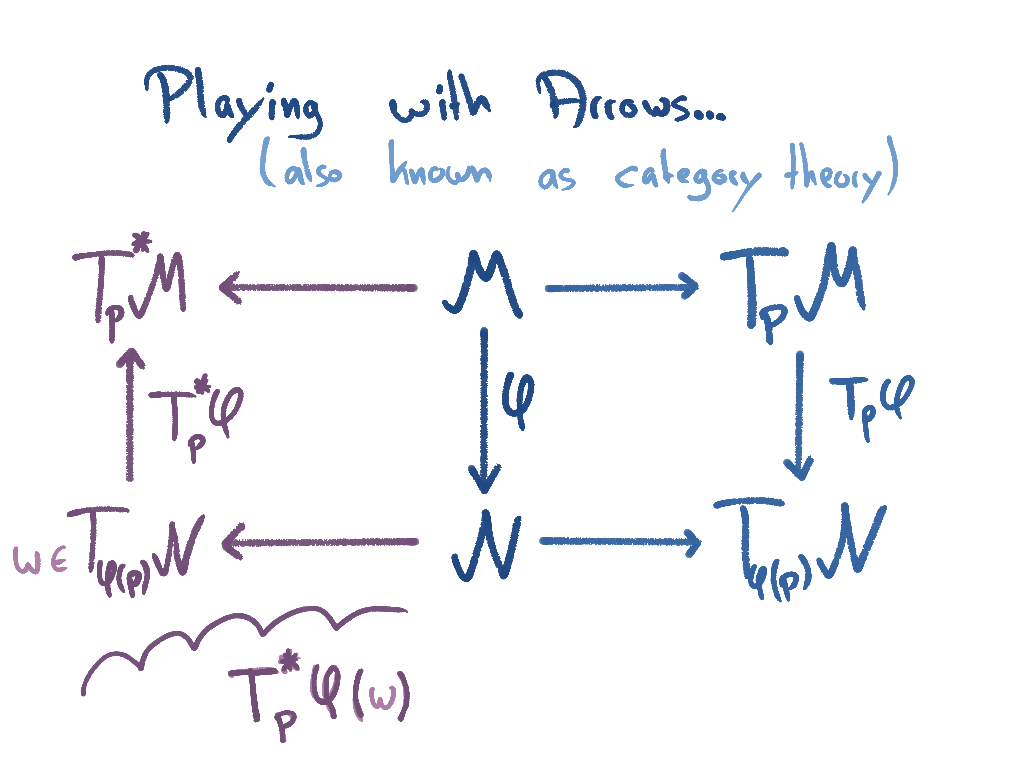 Playing with Arrows...
(also known as category theory)
T*ₚM M TₚM
T*ₚφ φ Tₚφ
ω∈ T_φ(p)N N T_φ(p)N
T*ₚφ(ω)